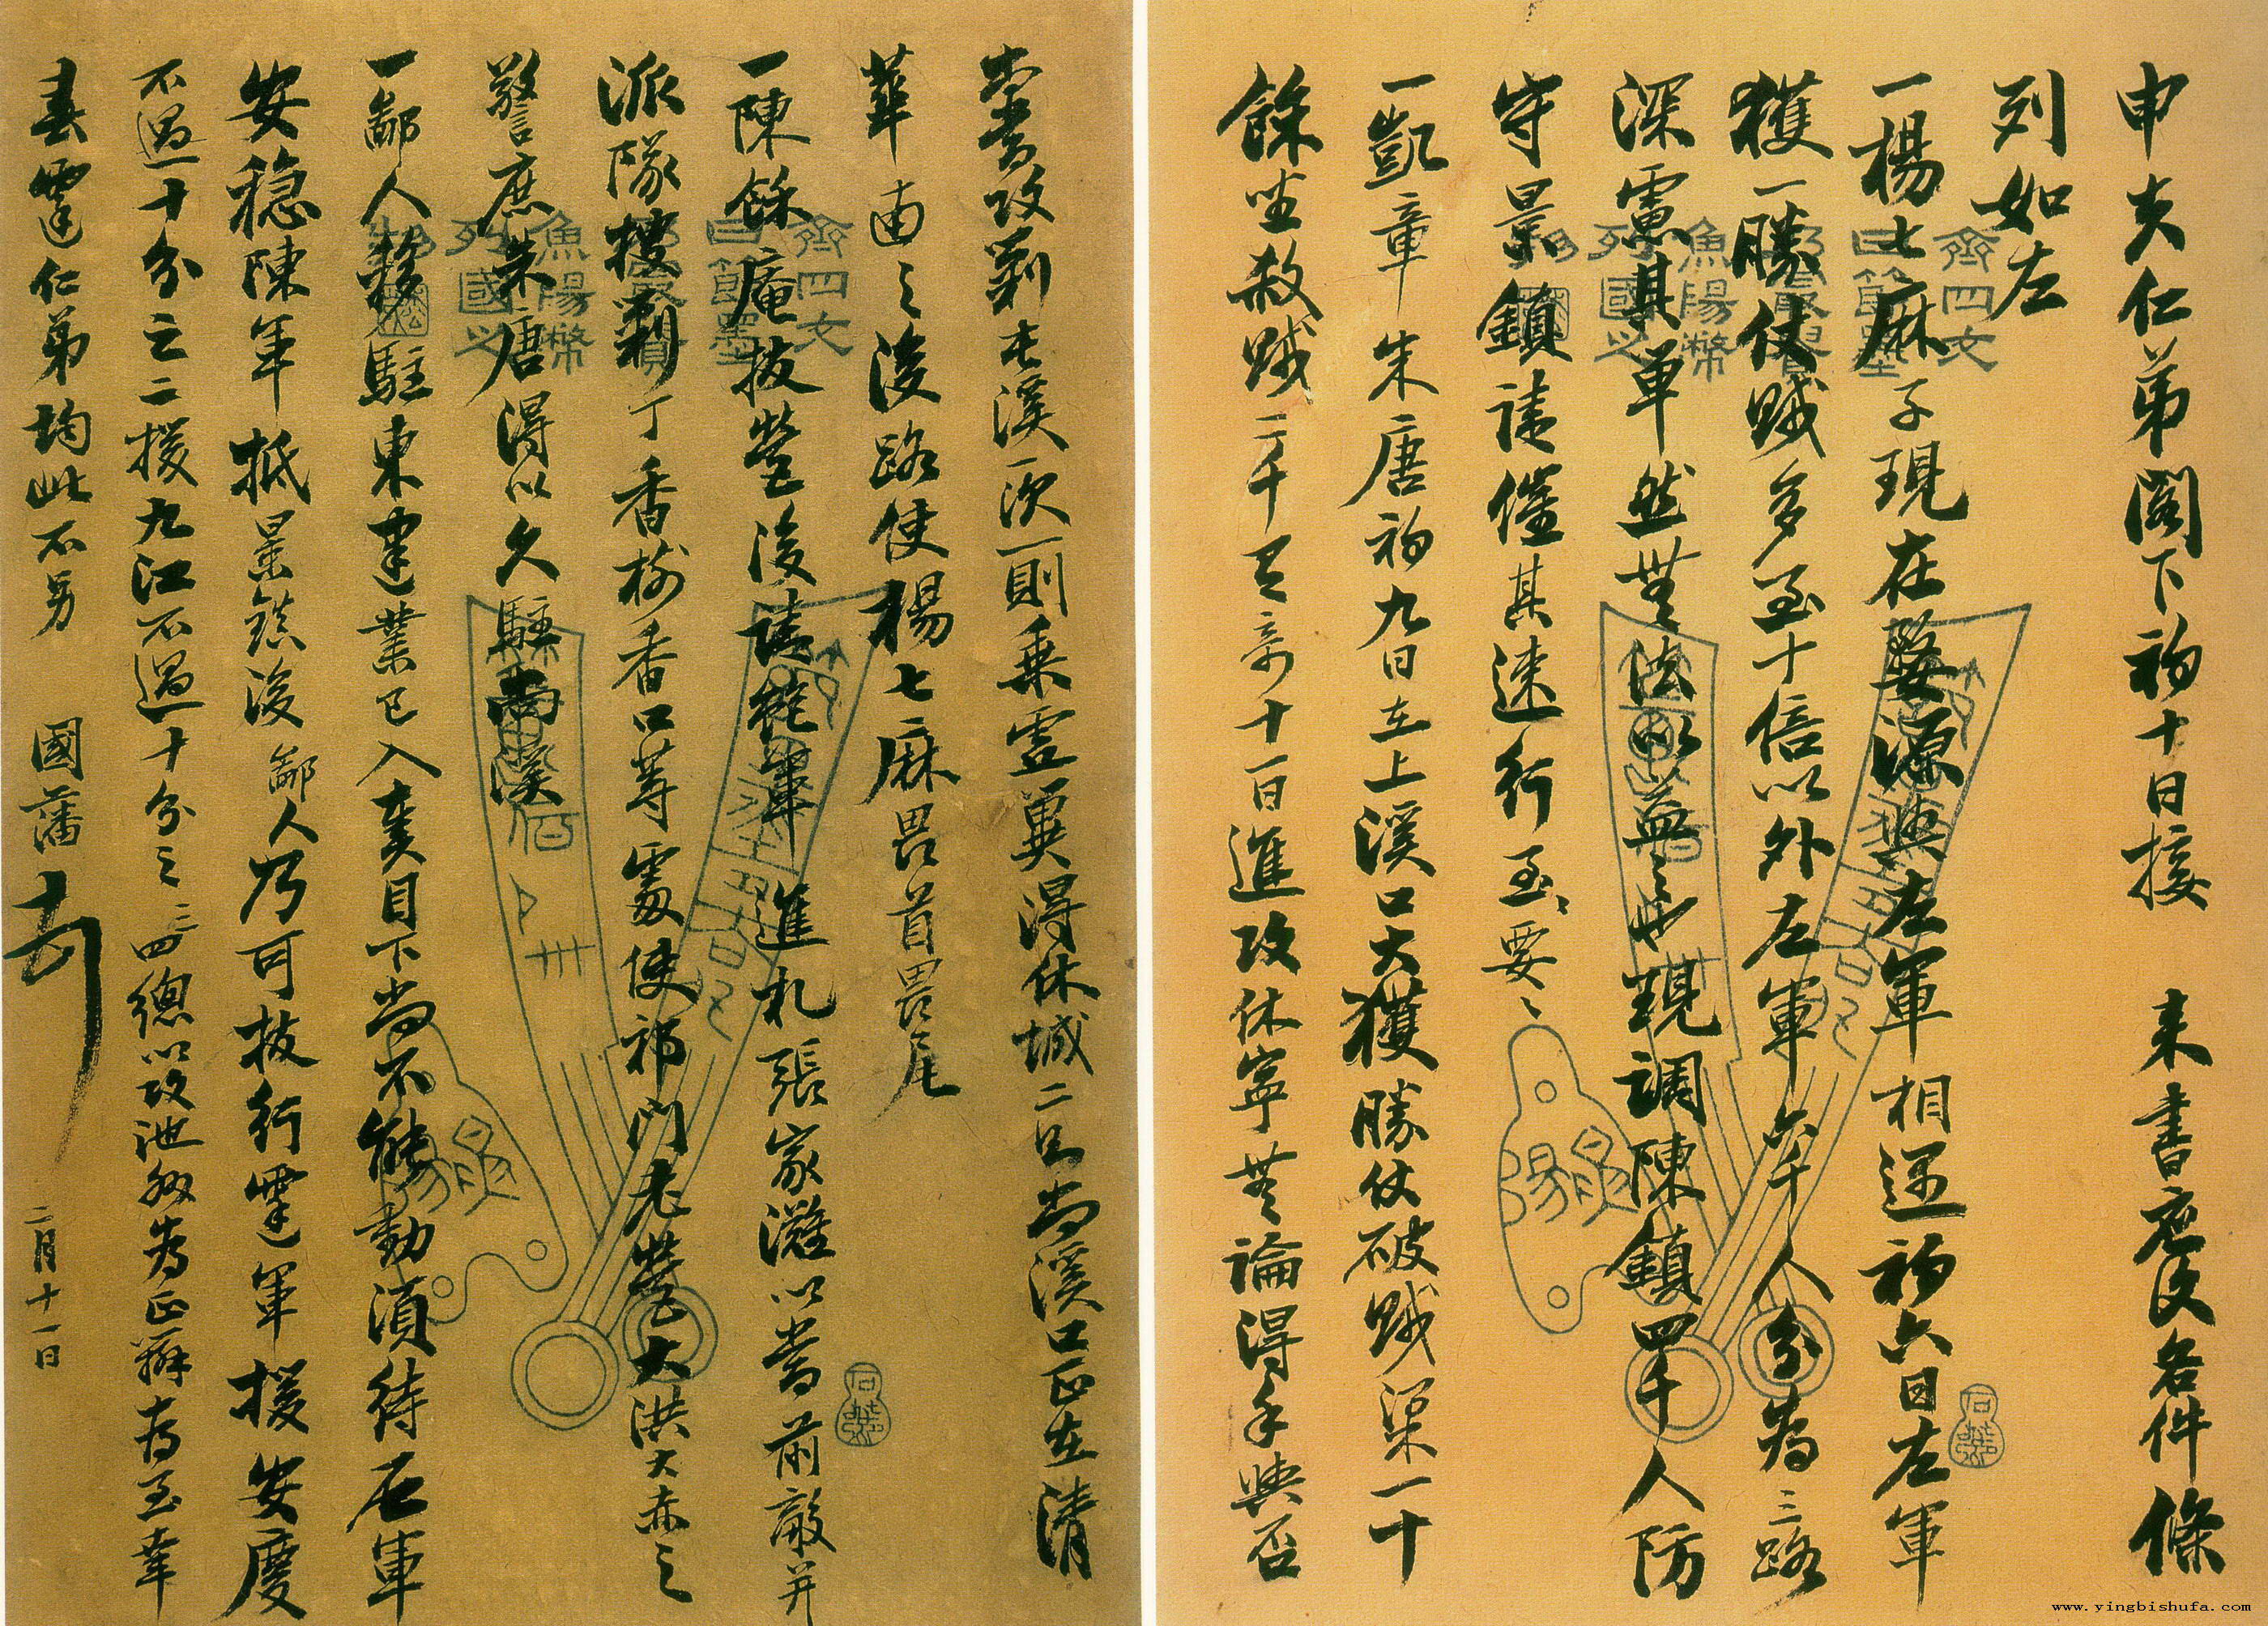 申夫仁弟閣下初十日接 来書應復各件條
列如左
一楊七麻子現在婺源與左軍相遇初六日左軍
獲一勝仗賊多至十倍以外左軍六千人分為三路
深慮其單然無法以益之也現調陳鎮四千人防
守景鎮請催其速行至要
一凱章朱唐初九日在上溪口大獲勝仗破賊壘一十
餘坐殺賊二千有奇十一日進攻休寧無論得手與否
當攻剿屯溪一次一則乘虛冀得休城二則上溪口正在清
華街之後路使楊七麻畏首畏尾
一陳餘庵拔營後請龍軍進札張家灘以當前敵并
派隊搜剿丁香樹香口等處使祁門老營大洪大赤之
警庶朱唐得以久駐兩溪
一鄙人移駐東建業已入奏目下尚不能動須待左軍
安穩陳軍抵景鎮後鄙人乃可拔行霆軍援安慶
不過十分之二援九江不過十分之三四總以攻池州為正辦為至幸
春霆仁弟均此不另 國藩
二月十一日
齊四文
曰節墨
魚陽幣
列國以
石
www.yingbishufa.com